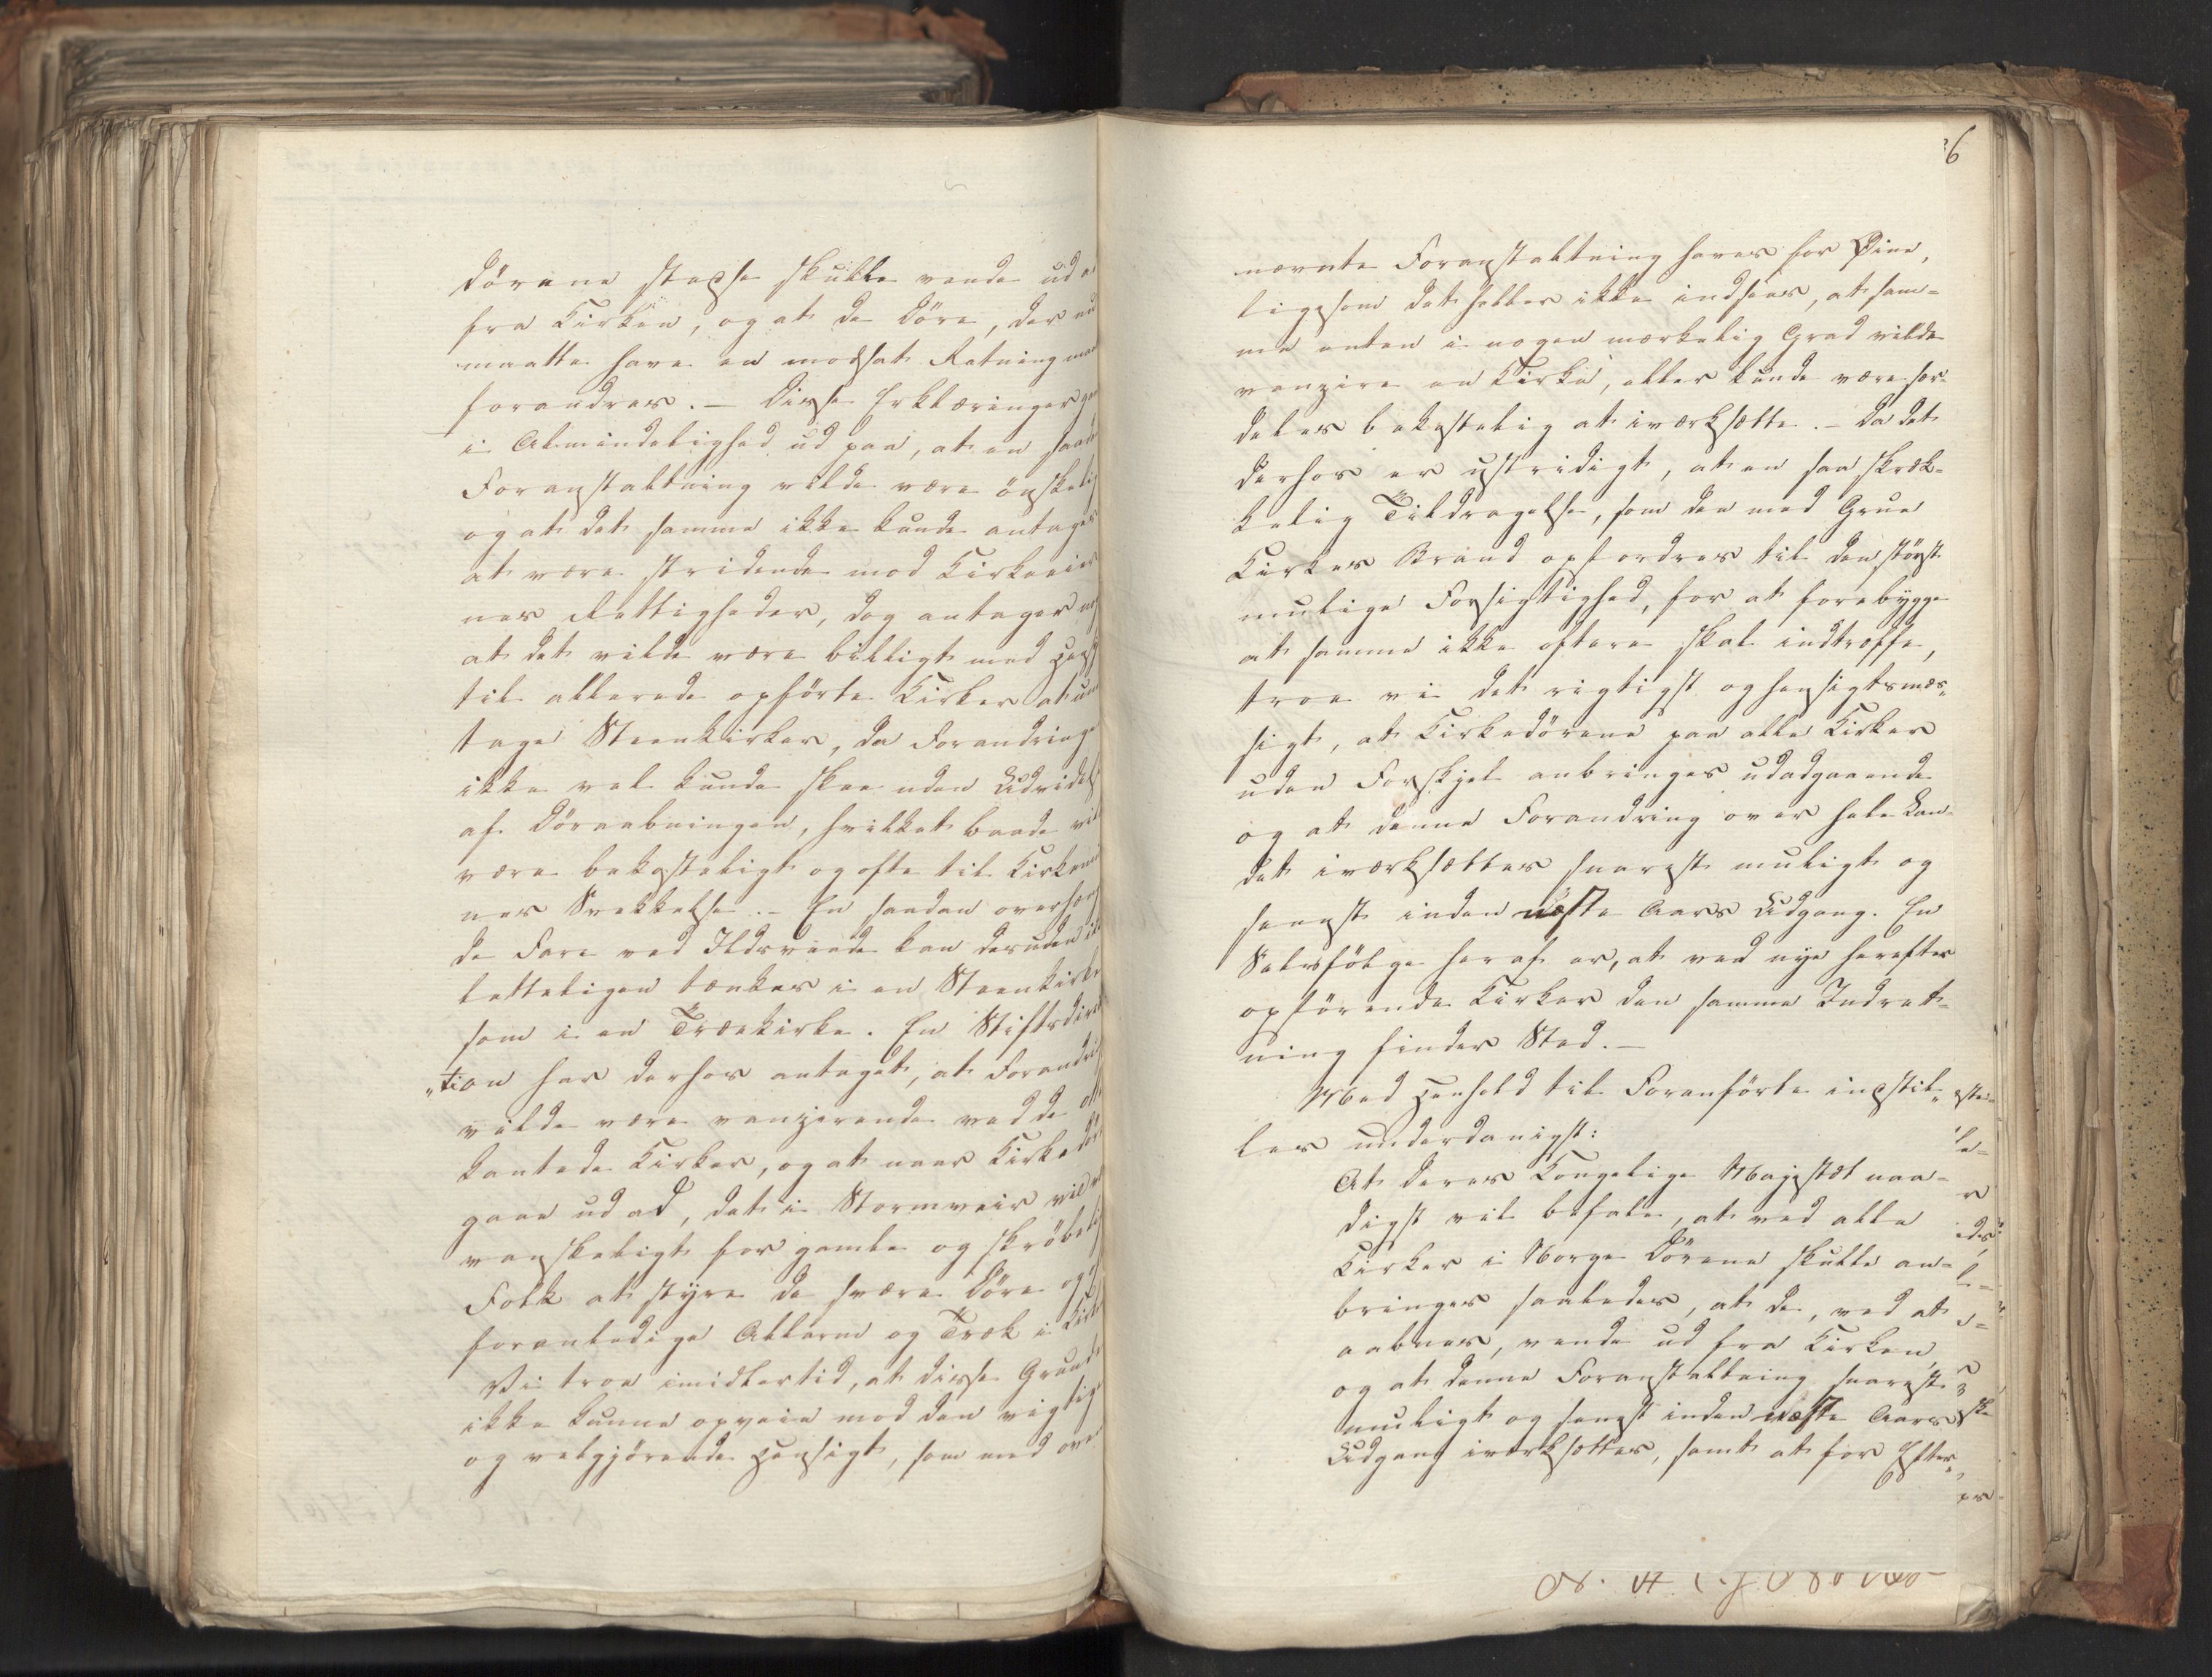 Dörene stedse skulle vende ud a
fra Kirken, og at de Döre, der nu
maatte have en modsat Retning maa
forandres. – Disse Erklæringer gaa
i Almindelighed ud paa, at en saad
Foranstaltning vilde være önskelig
og at det samme ikke kunde antages
at være stridende mod Kirkeeier
nes Rettigheder, dog antager nog
at det vilde være billigt med Hens
til allerede opförte Kirker at und
tage Steenkirker, da Forandringe
ikke vel kunde skee uden Udvidels
af Döraabningen, hvilket baade vil
være bekosteligt og ofte til Kirkemu
nes Svekkelse. – En saadan overhæng
de Fare ved Ildsvaade kan desuden ik
letteligen tænkes i en Steenkirke
som i en Trækirke. En Stiftsdirec
„tion har derhos antaget, at Forandri
vilde være vanzirende ved de ott
kantede Kirker, og at naar Kirkedör
gaae ud ad, det i Stormveir vil v
vanskeligt for gamle og skröbelig
Folk at styre de svære Döre og
foranledige Allarm og Træk i Kirk
Vi troe imidlertid, at disse Grunde
ikke kunne opveie mod den vigtig
og velgjörende Hensigt, som med ove
6
nævnte Foranstaltning haves for Øine,
ligesom det heller ikke indsees, at sam=
me enten i nogen mærkelig Grad vilde
vanzire en Kirke, eller kunde være sær=
deles bekostelig at iværksætte. – Da det
derhos er ustridigt, at en saa skræk=
kelig Tildragelse, som den med Grue
Kirkes Brand opfordrer til den störst
mulige Forsigtighed, for at forebygge
at samme ikke oftere skal indtræffe,
troe vi det rigtigst og hensigtsmæs„
sigt, at Kirkedörene paa alle Kirker
uden Forskjel anbringes udadgaaende
og at denne Forandring over hele Lan=
det iværksættes snarest muligt og
senest inden næste Aars Udgang. En
Selvfölge heraf er, at ved nye herefter
opförende Kirker den samme Indret=
ning finder Sted. –
Med Henhold til Foranförte indstil„
les underdanigst:
At Deres Kongelige Majestæt naa=
digst vil befale, at ved alle
Kirker i Norge Dörene skulle an=
bringes saaledes, at de, ved at
aabnes, vende ud fra Kirken,
og at denne Foranstaltning snarest
muligt og senest inden næste Aars
Udgang iværksættes, samt at for Efter„